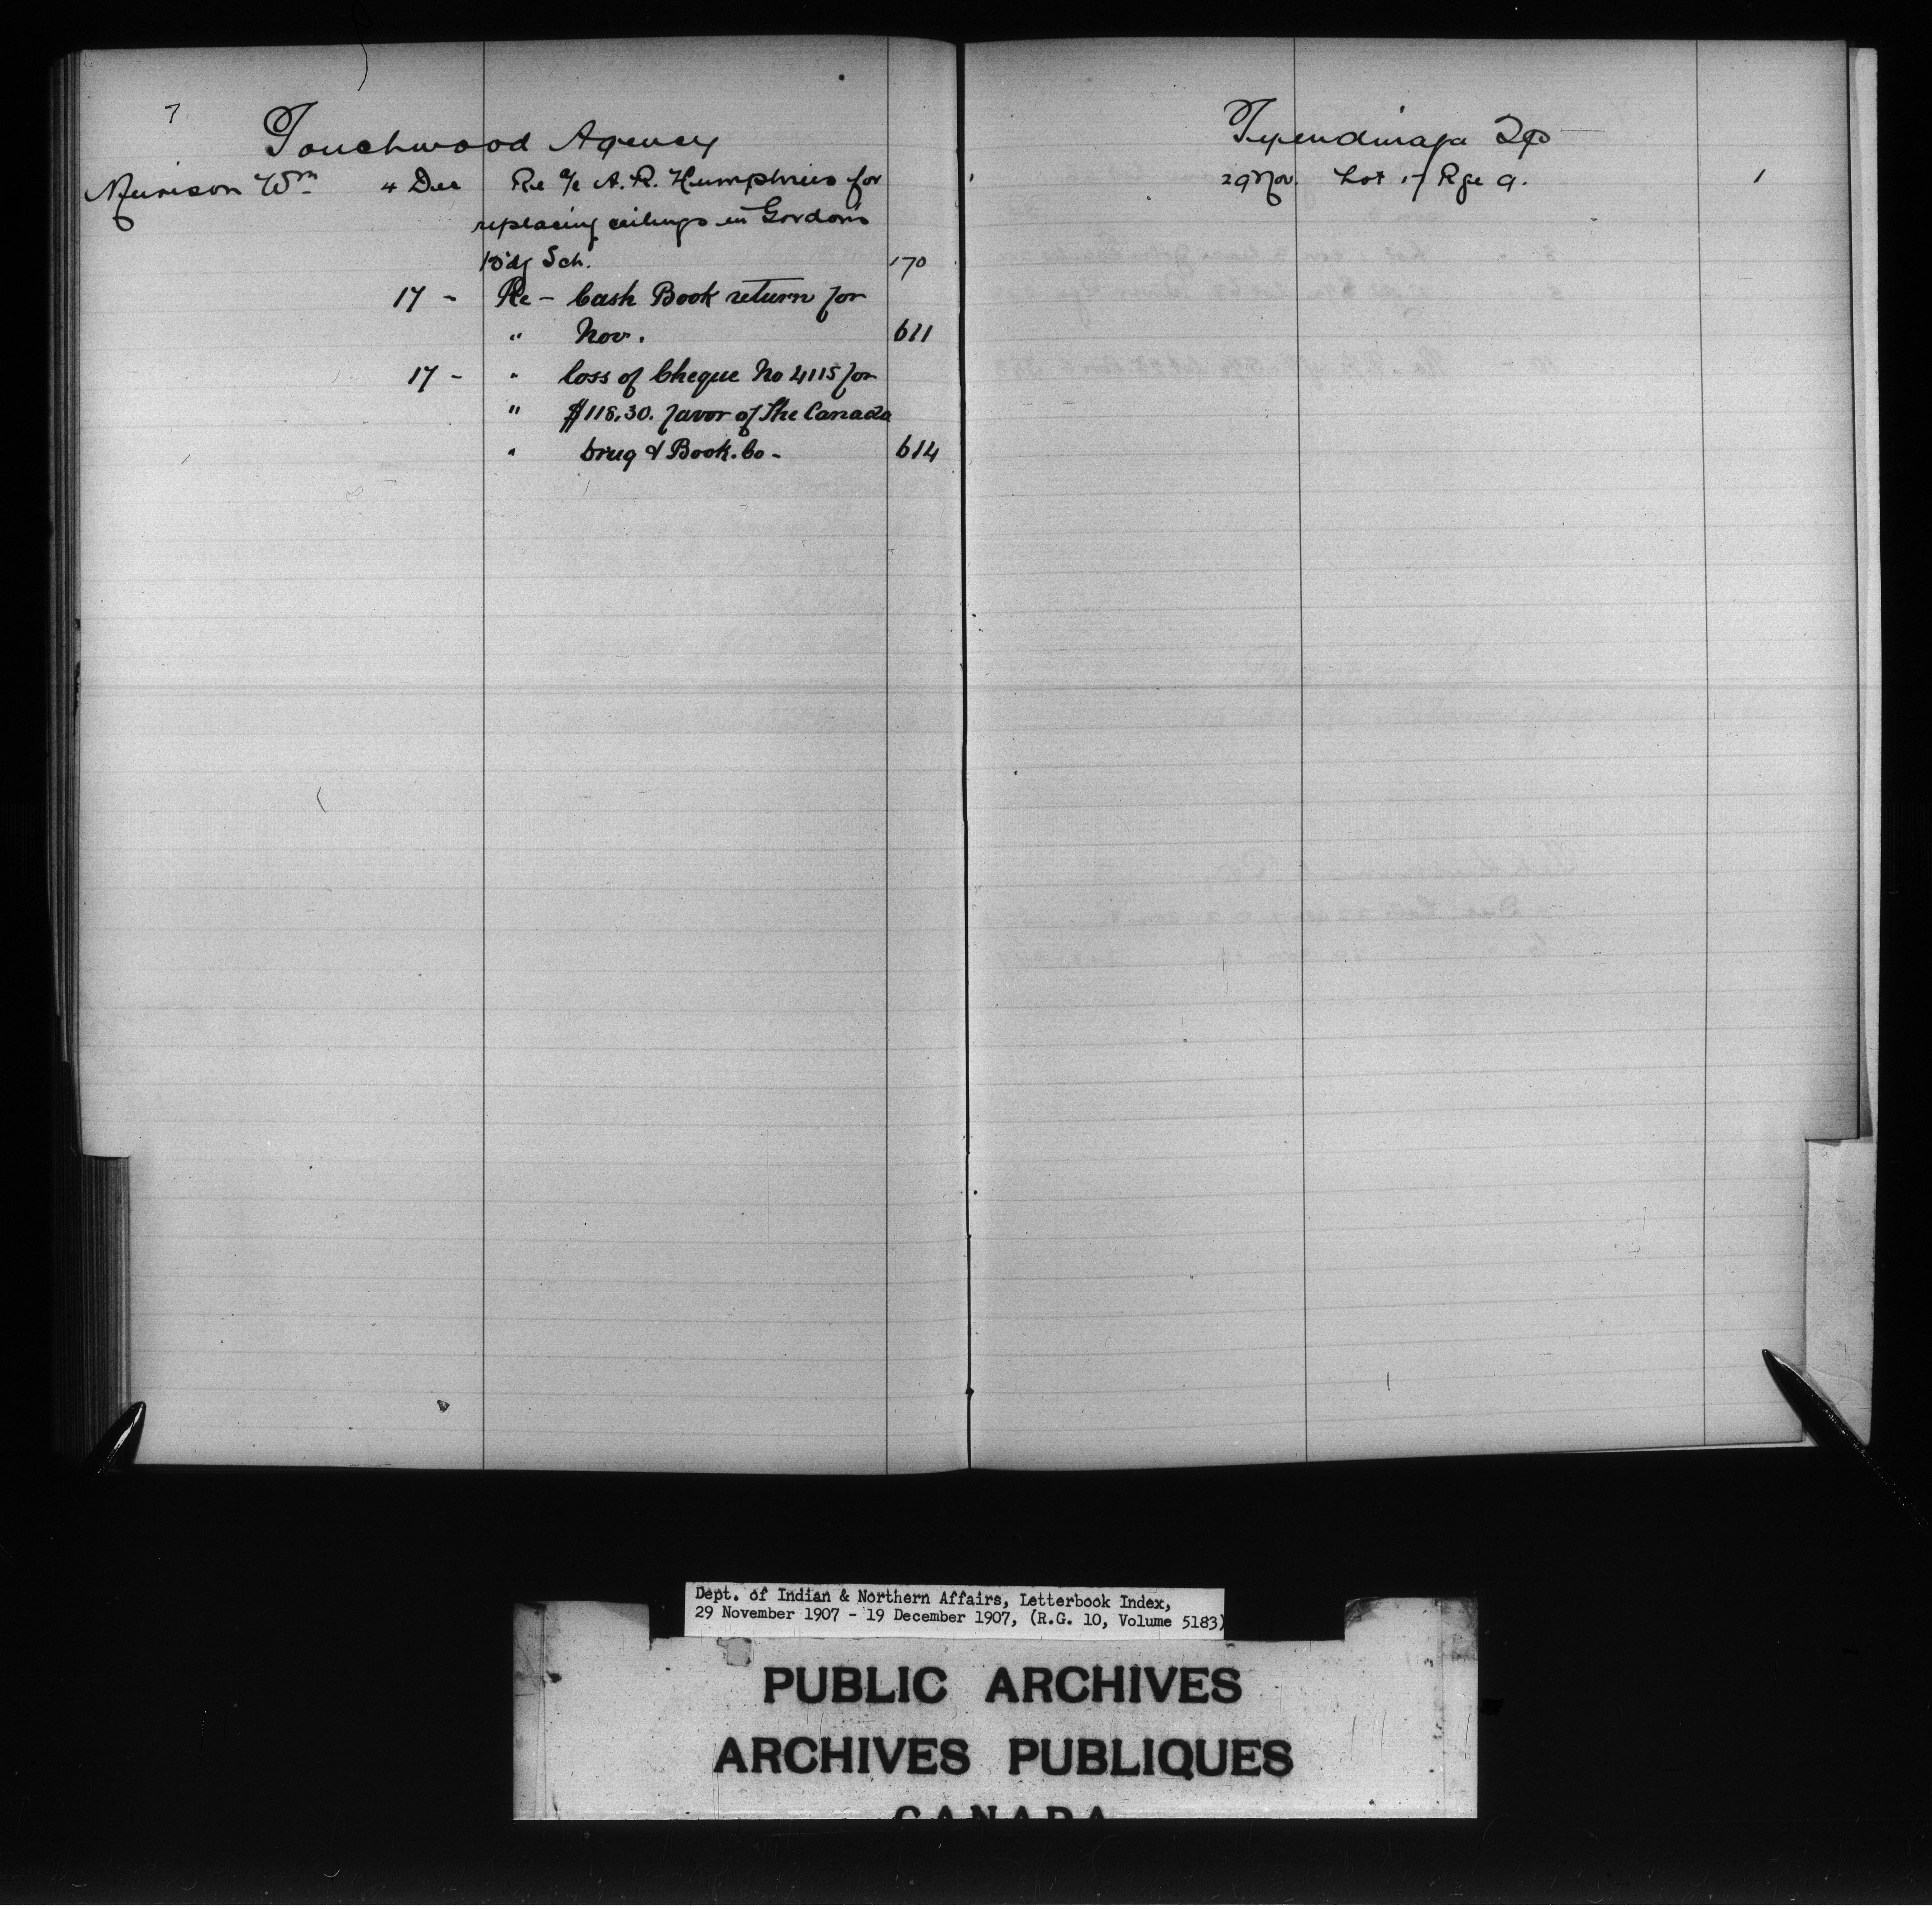 Touchwood Agency
Murison Wm 4 Dec Re a/c A. R. Humphries for
replacing ceilings in Gordon's
B'dg Sch. 170
17 - Re - Cash Book return for
" Nov. 611
17 - " loss of Cheque No 4115 for
" $118.30. favor of The Canada
" Drug & Book. Co - 614
Tyendinaga Tp
29 Nov. Lot 17 Rge A. 1
Dept. of Indian & Northern Affairs, Letterbook Index,
29 November 1907 - 19 December 1907, (R.G. 10, Volume 5183)
PUBLIC ARCHIVES
ARCHIVES PUBLIQUES
CANADA